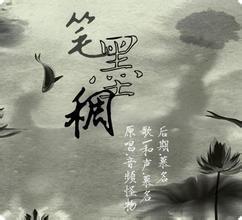 笔墨稠
后期慕名
歌/和声慕名
原唱/音频怪物